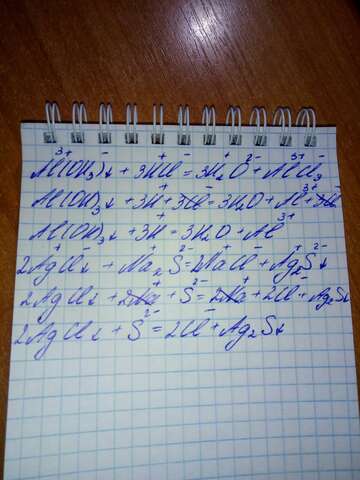 Al³⁺(OH⁻)₃↓ + 3H⁺Cl⁻ = 3H₂⁺O²⁻ + Al³⁺Cl₃⁻
Al(OH)₃↓ + 3H⁺ + 3Cl⁻ = 3H₂O + Al³⁺ + 3Cl⁻
Al(OH)₃↓ + 3H⁺ = 3H₂O + Al³⁺
2Ag⁺Cl⁻↓ + Na₂⁺S²⁻ = 2Na⁺Cl⁻ + Ag₂⁺S²⁻↓
2AgCl↓ + 2Na⁺ + S²⁻ = 2Na⁺ + 2Cl⁻ + Ag₂S↓
2AgCl↓ + S²⁻ = 2Cl⁻ + Ag₂S↓